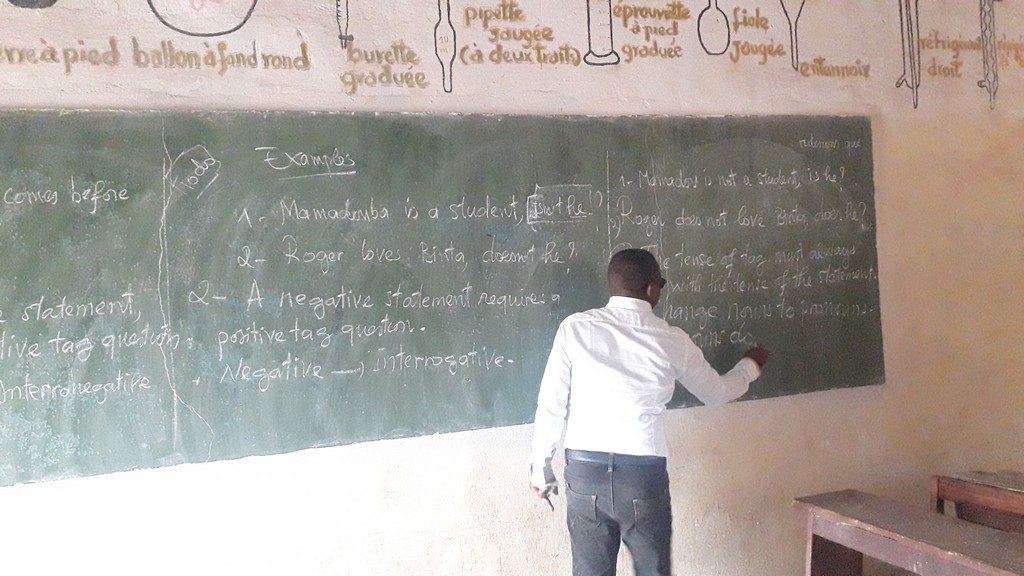 verre à pied
ballon à fond rond
burette
graduée
pipette
jaugée
(à deux traits)
éprouvette
à pied
graduée
fiole
jaugée
entonnoir
droit
comes before
statement,
tive tag question;
Interronegative
Examples
1- Mamadouba is a student, isn't he?
2- Roger loves Binta, doesn't he?
2- A negative statement requires a
positive tag question.
+ Negative → interrogative.
1- Mamadou is not a student, is he?
2) Roger does not love Binta, does he?
tense of tag must always
with the tense of the statement.
change nouns to pronouns.